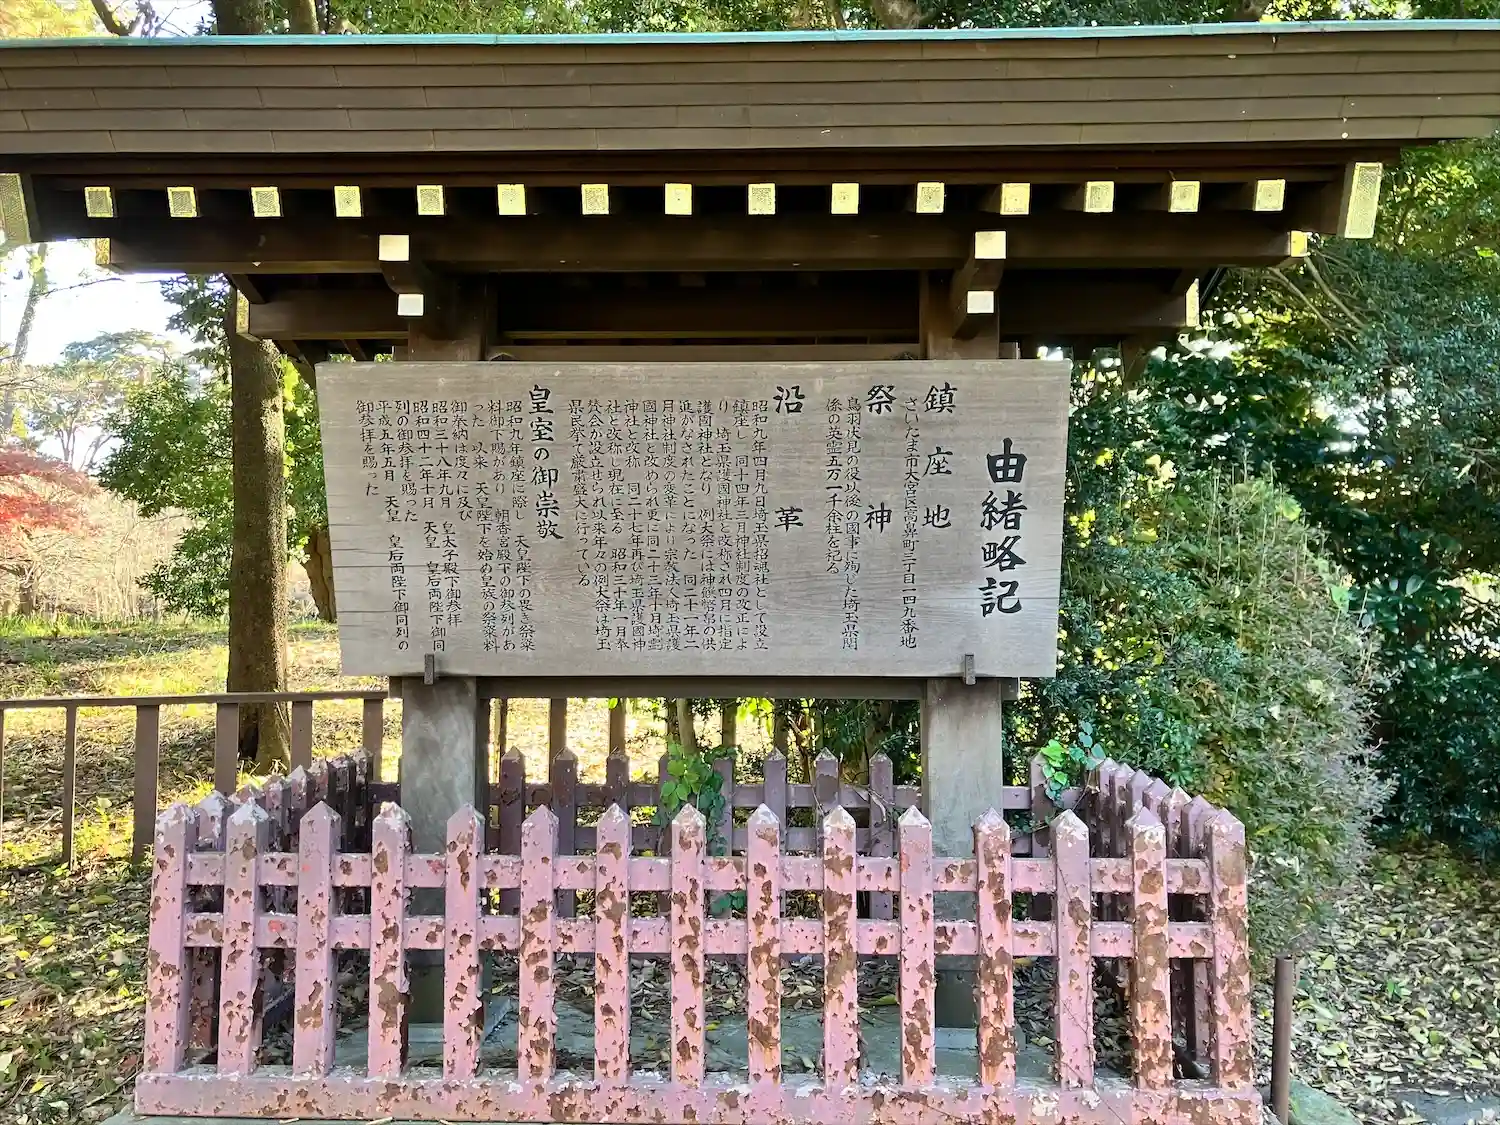 由緒略記
鎮座地
さいたま市大宮区高鼻町三丁目一四九番地
祭神
鳥羽伏見の役以後の國事に殉じた埼玉県関
係の英霊五万一千余柱を祀る
沿革
昭和九年四月九日埼玉県招魂社として設立
鎮座し 同十四年三月神社制度の改正によ
り 埼玉県護國神社と改称され四月に指定
護國神社となり 例大祭には神饌幣帛の供
進がなされたことになった 同二十一年二
月神社制度の変革により宗教法く埼玉県護
國神社と改められ更に同二十三年十月埼霊
神社と改称 同二十七年再び埼玉県護國神
社と改称し現在に至る 昭和三十年一月奉
賛会が設立せられ以来年々の例大祭は埼玉
県民挙て厳粛盛大に行っている
皇室の御崇敬
昭和九年鎮座に際し 天皇陛下の畏き祭粢
料御下賜があり 朝香宮殿下の御参列があ
った 以来 天皇陛下を始め皇族の祭粢料
御奉納は度々に及び
昭和三十八年九月 皇太子殿下御参拝
昭和四十二年十月 天皇 皇后両陛下御同
列の御参拝を賜った
平成五年五月 天皇 皇后両陛下御同列の
御参拝を賜った